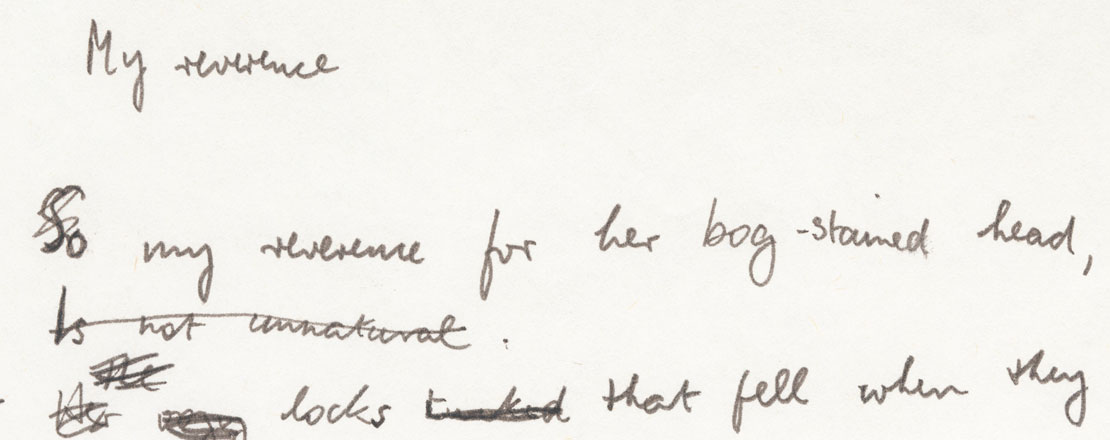 My reverence
So my reverence for her bog-stained head,
Is not unnatural.
The
Her locks that fell when they